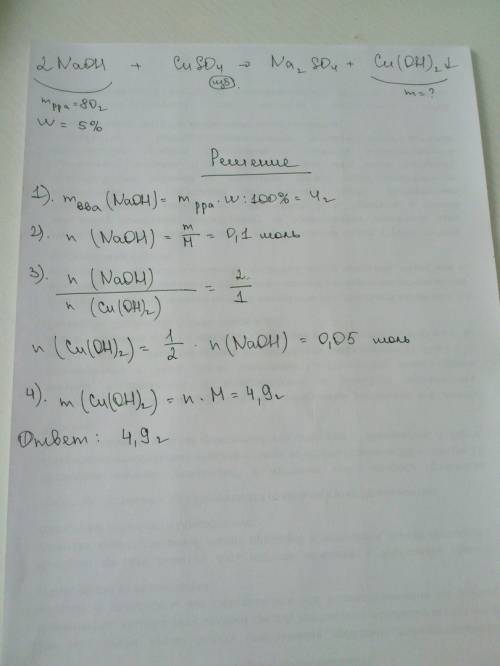 2NaOH + CuSO4 → Na2SO4 + Cu(OH)2↓
изб.
mр-ра = 80г
m = ?
W = 5%
Решение
1). mв-ва (NaOH) = mр-ра · w : 100% = 4г
2). n (NaOH) = m/M = 0,1 моль
3). n (NaOH) / n (Cu(OH)2) = 2/1
n (Cu(OH)2) = 1/2 · n (NaOH) = 0,05 моль
4). m (Cu(OH)2) = n · M = 4,9г
Ответ: 4,9г